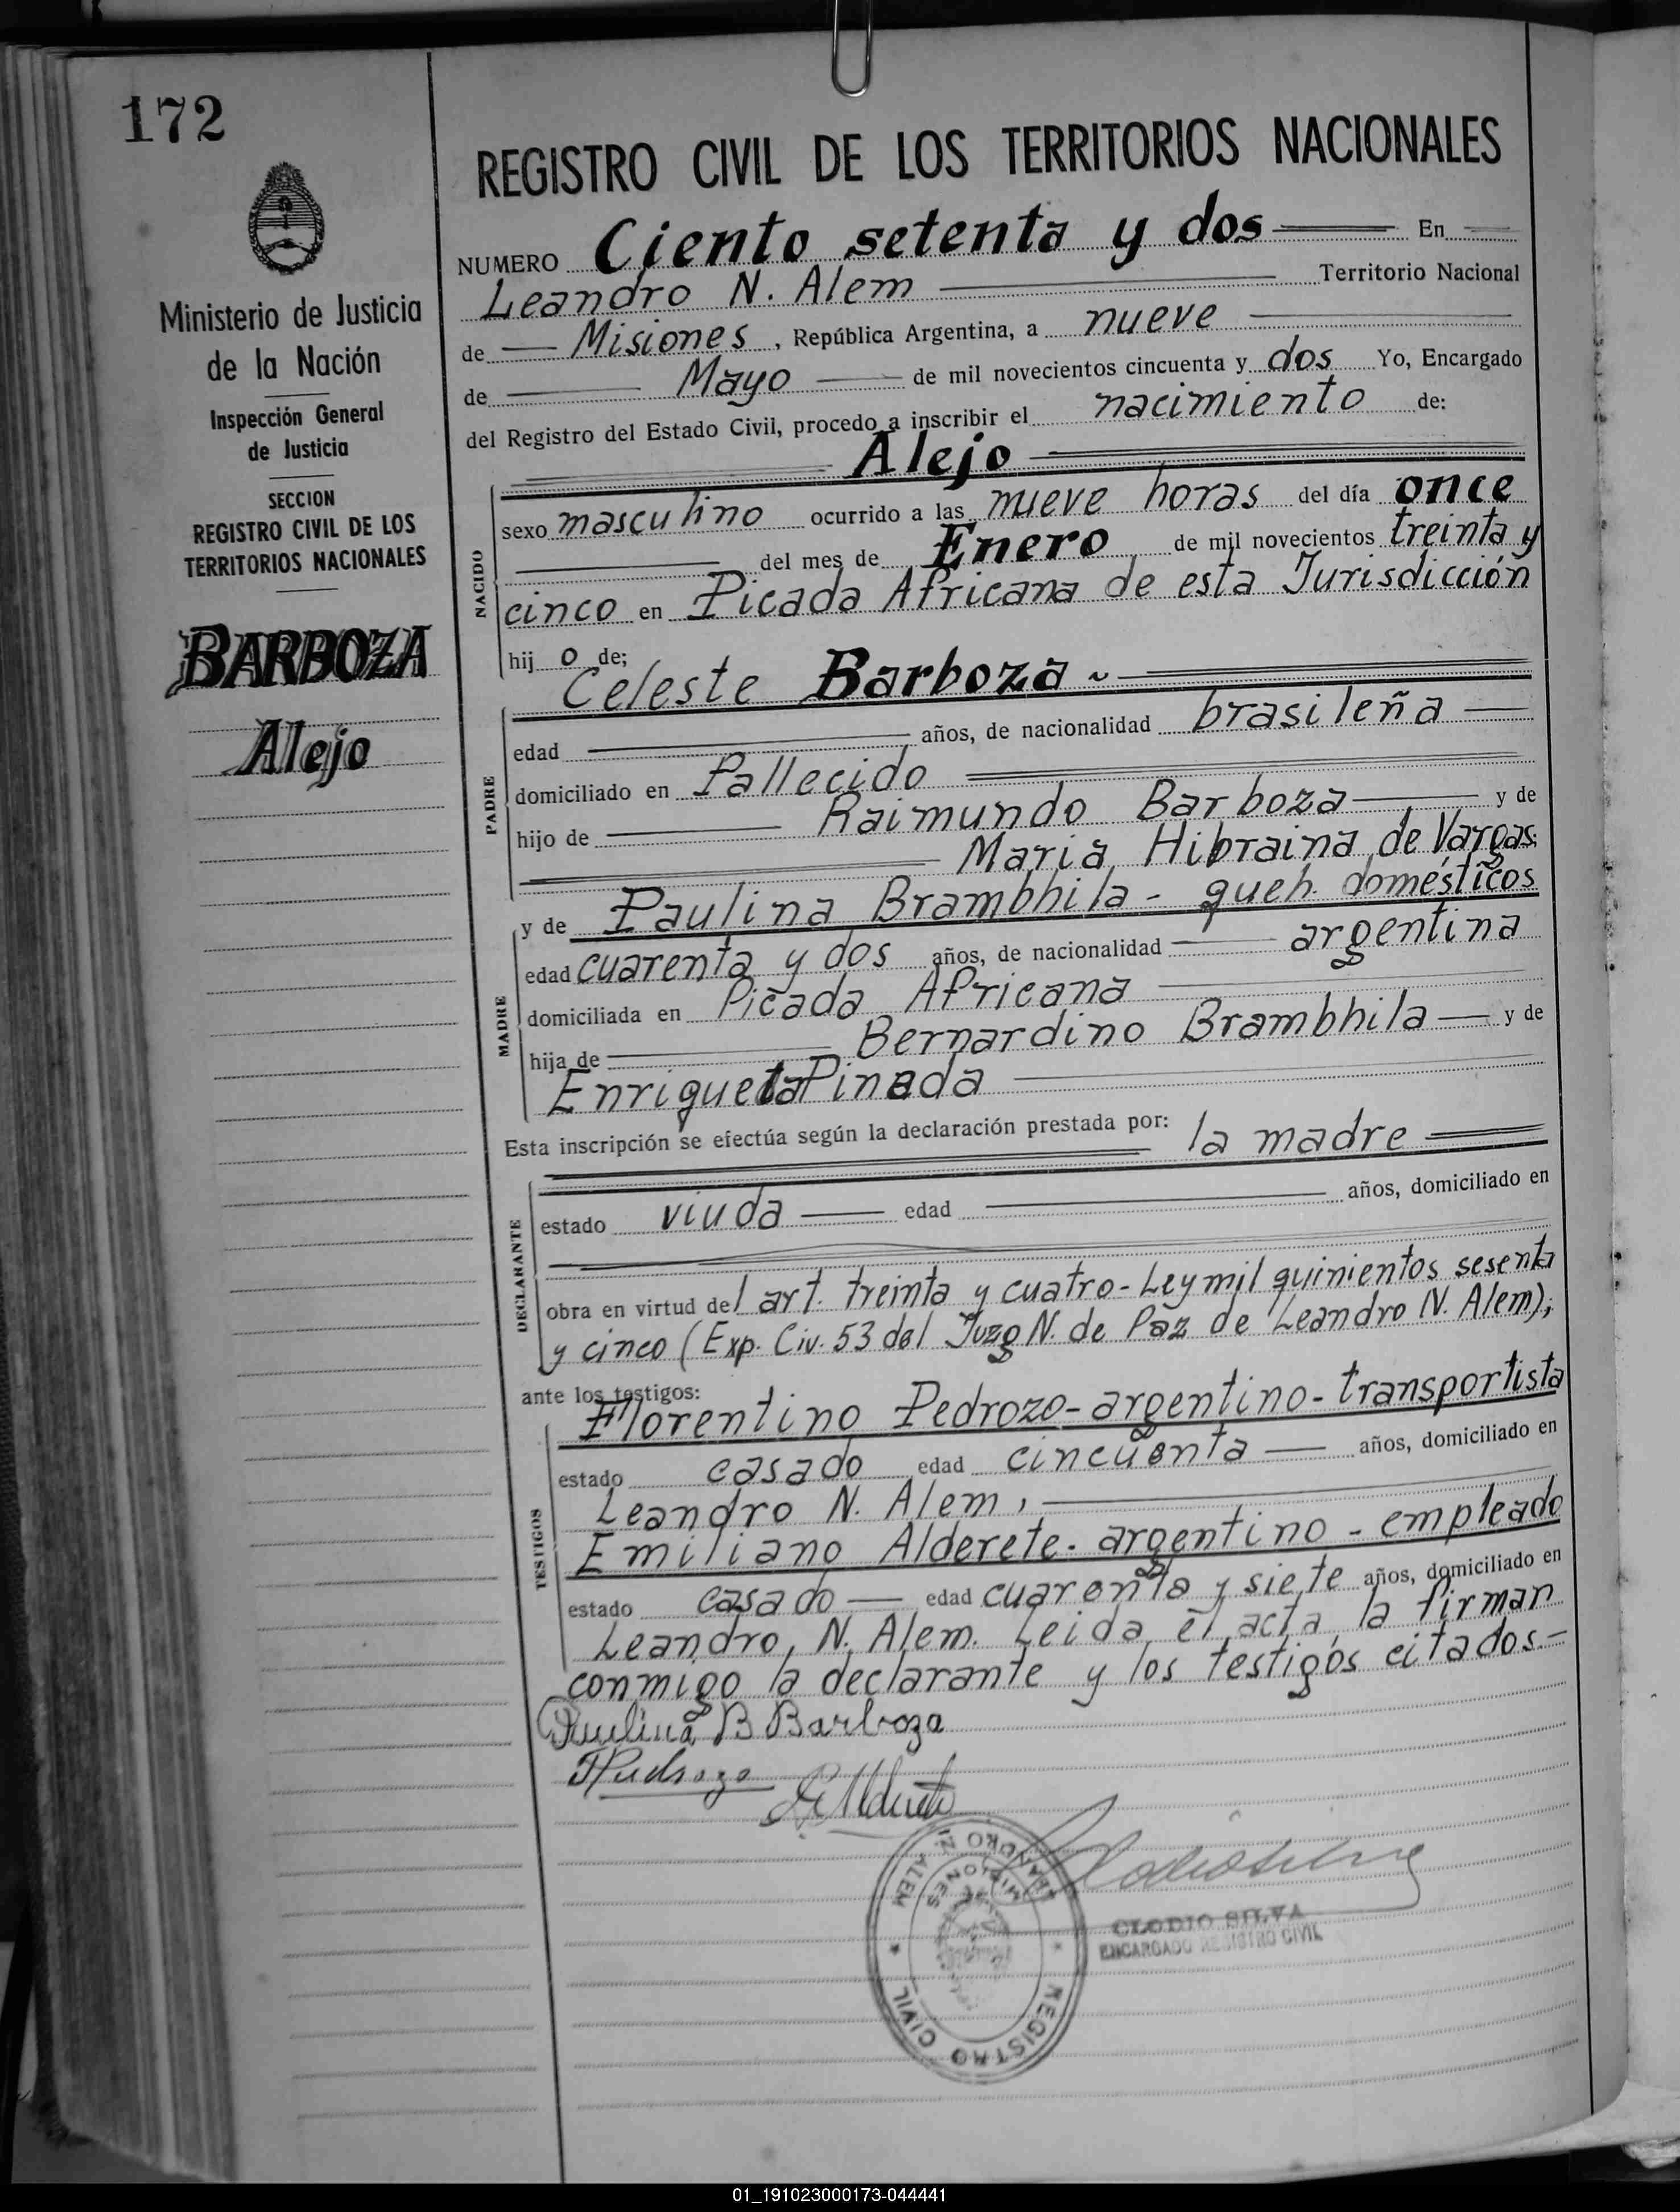 172
Ministerio de Justicia
de la Nación
Inspección General
de Justicia
SECCION
REGISTRO CIVIL DE LOS
TERRITORIOS NACIONALES
BARBOZA
Alejo
REGISTRO CIVIL DE LOS TERRITORIOS NACIONALES
NUMERO Ciento setenta y dos En
Leandro N. Alem Territorio Nacional
de Misiones, República Argentina, a nueve
de Mayo de mil novecientos cincuenta y dos Yo, Encargado
del Registro del Estado Civil, procedo a inscribir el nacimiento de:
Alejo
NACIDO
sexo masculino ocurrido a las nueve horas del día once
del mes de Enero de mil novecientos treinta y
cinco en Picada Africana de esta Jurisdicción
hij o de;
Celeste Barboza
PADRE
edad años, de nacionalidad brasileña
domiciliado en Fallecido
hijo de Raimundo Barboza y de
Maria Hibraina de Vargas
y de Paulina Brambhila - queh. domésticos
MADRE
edad cuarenta y dos años, de nacionalidad argentina
domiciliada en Picada Africana
hija de Bernardino Brambhila y de
Enriqueta Pineda
Esta inscripción se efectúa según la declaración prestada por: la madre
DECLARANTE
estado viuda edad años, domiciliado en
obra en virtud del art. treinta y cuatro - Ley mil quinientos sesenta
y cinco (Exp. Civ. 53 del Juzg N. de Paz de Leandro N. Alem);
ante los testigos:
Florentino Pedrozo - argentino - transportista
TESTIGOS
estado casado edad cincuenta años, domiciliado en
Leandro N. Alem,
Emiliano Alderete - argentino - empleado
estado casado edad cuarenta y siete años, domiciliado en
Leandro N. Alem. Leida el acta, la firman
conmigo la declarante y los testigos citados.-
Paulina B Barboza
FPedrozo
LEANDRO N. ALEM
MISIONES
REGISTRO CIVIL
CLODIO SILVA
ENCARGADO REGISTRO CIVIL
01_191023000173-044441